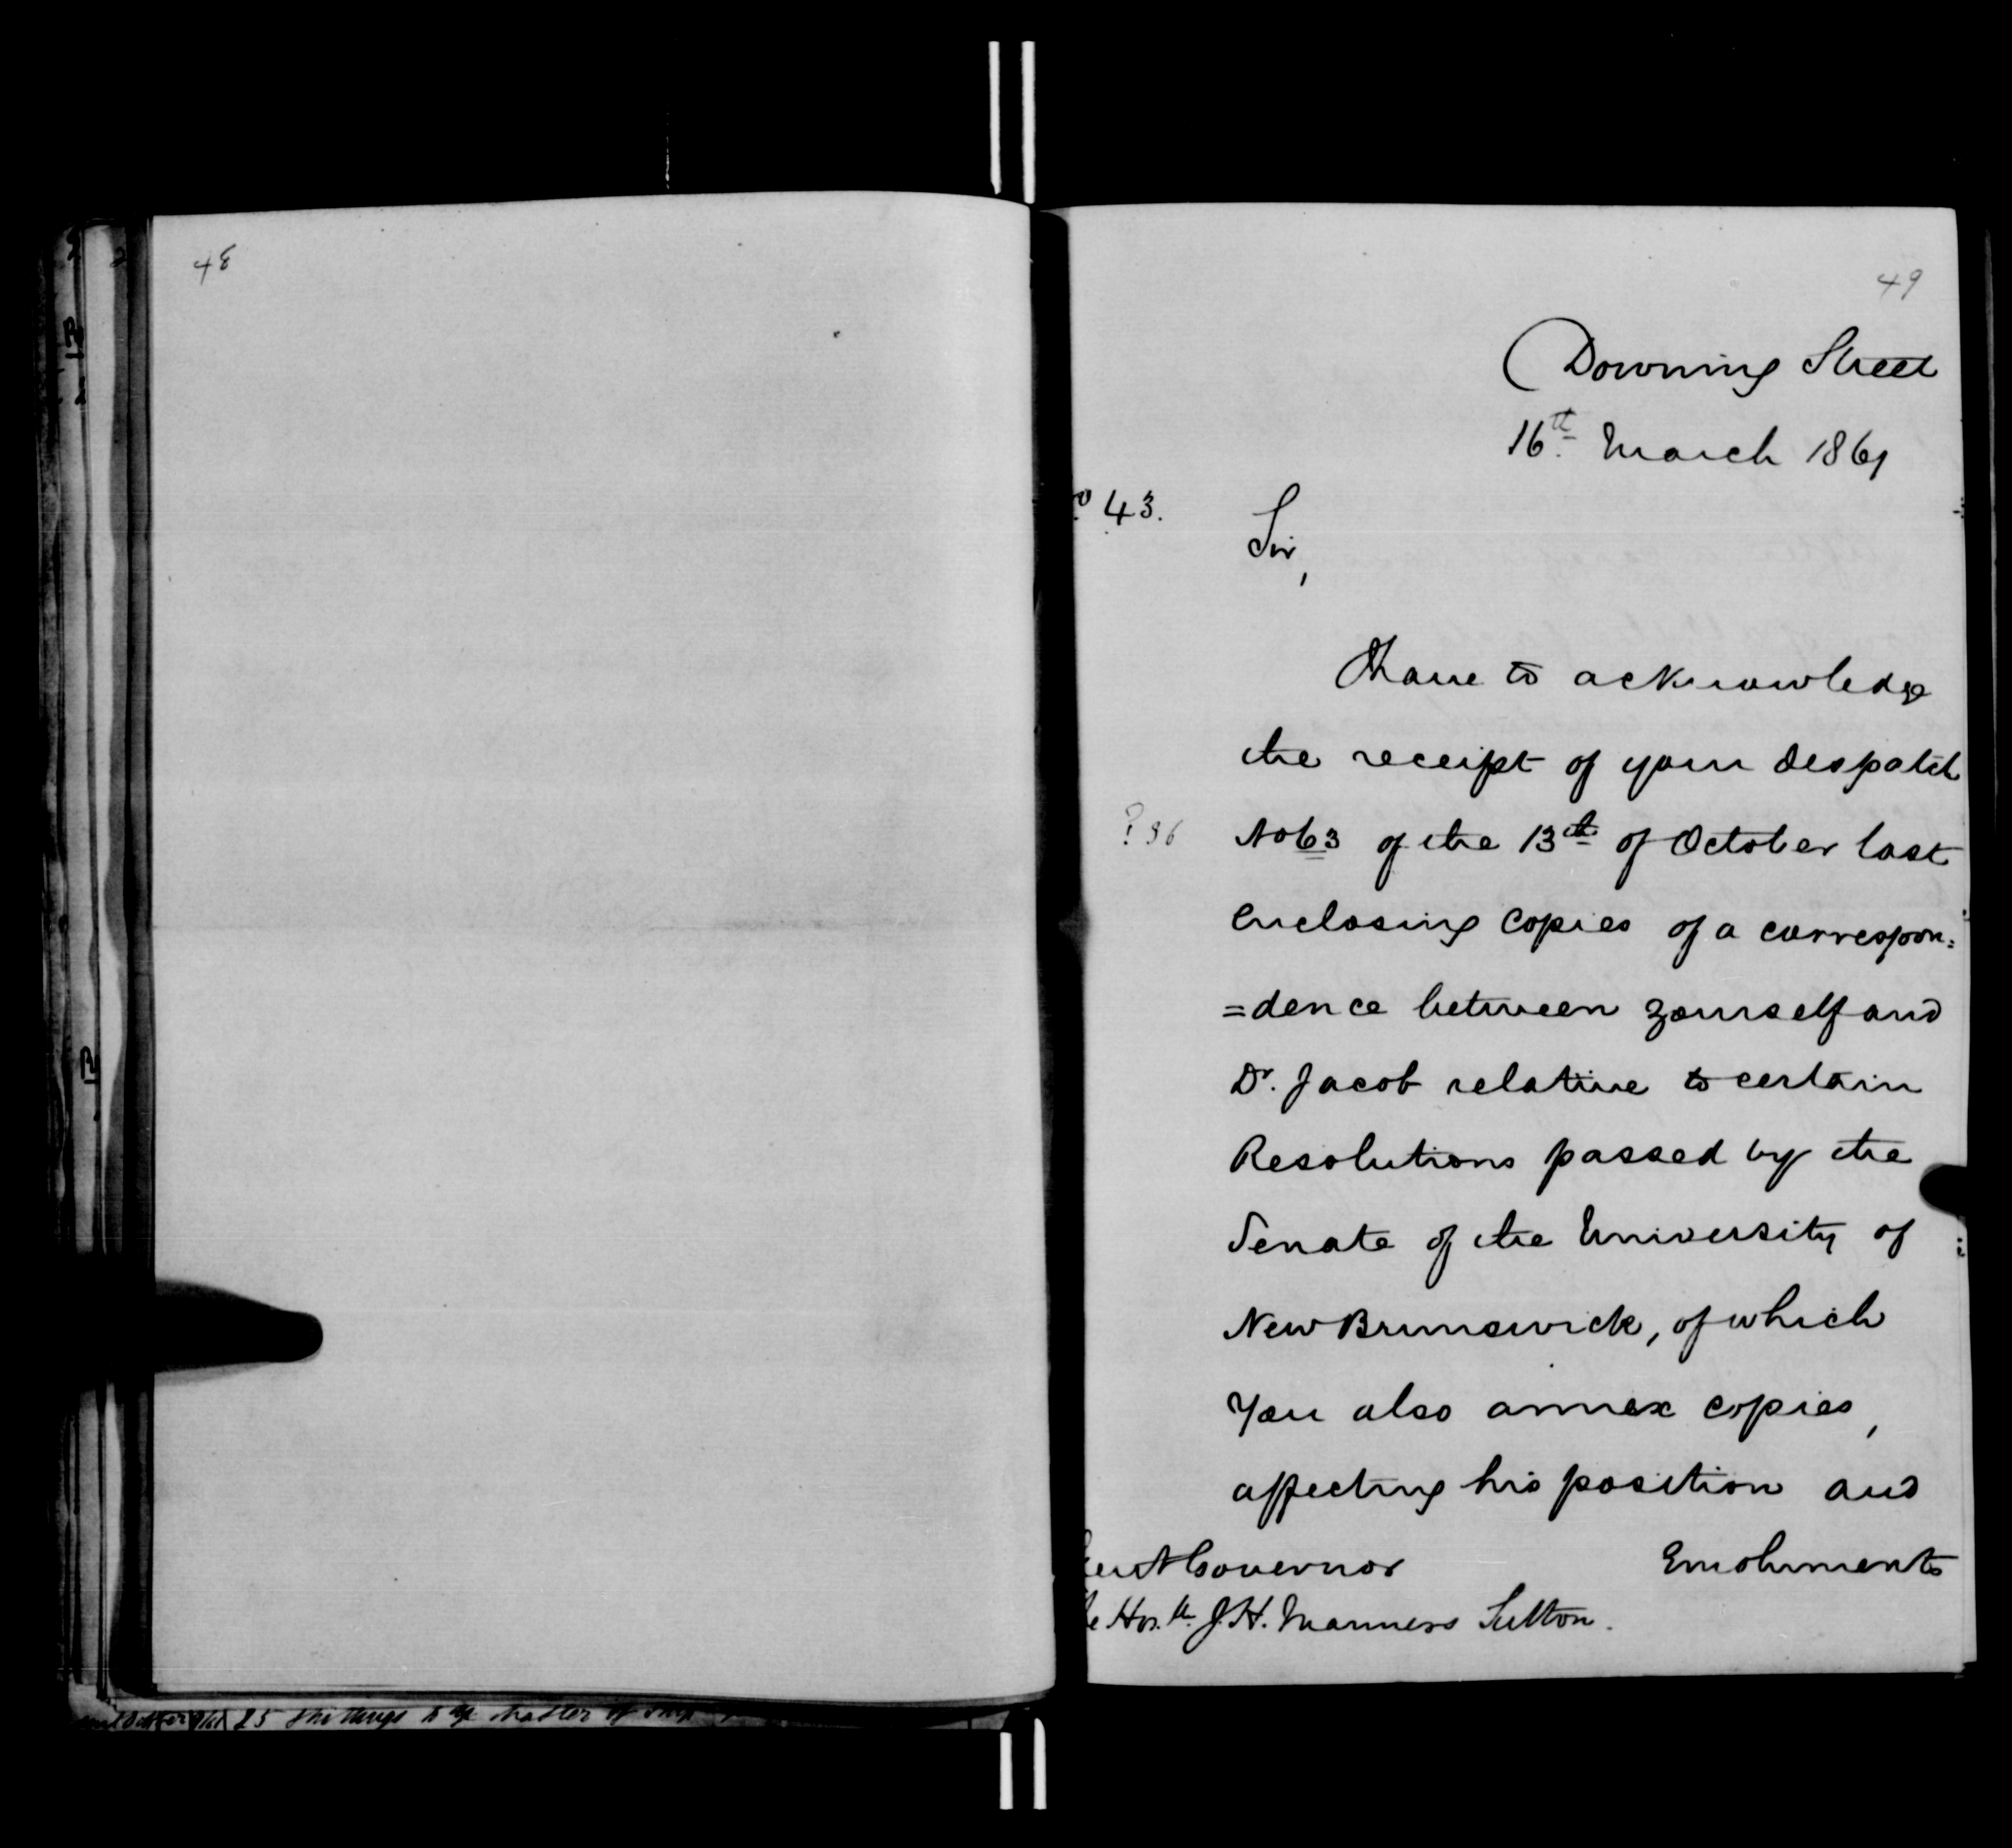 48
49
Downing Street
16th March 1861
43.
Sir,
I have to acknowledge
the receipt of your Despatch
? 86
No 63 of the 13th of October last
enclosing copies of a correspon=
=dence between yourself and
Dr. Jacob relative to certain
Resolutions passed by the
Senate of the University of
New Brunswick, of which
You also annex copies,
affecting his position and
Emoluments
Governor
Honble J. H. Manners Sutton.
25 shillings to the Master of